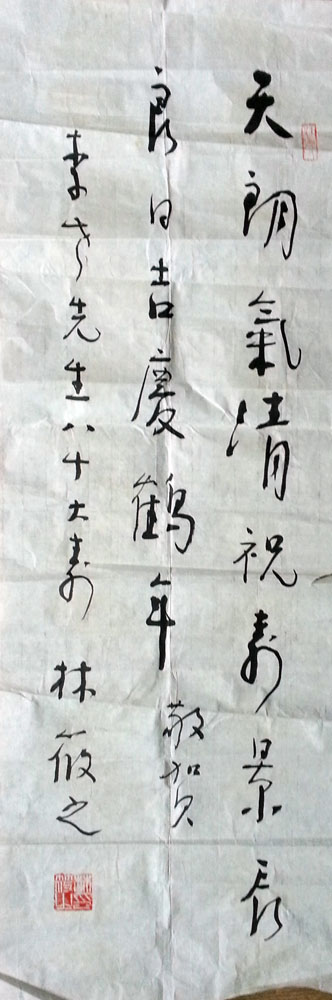 天朗氣清祝壽景辰
良日吉慶鶴年 敬賀
李老先生八十大壽 林筱之